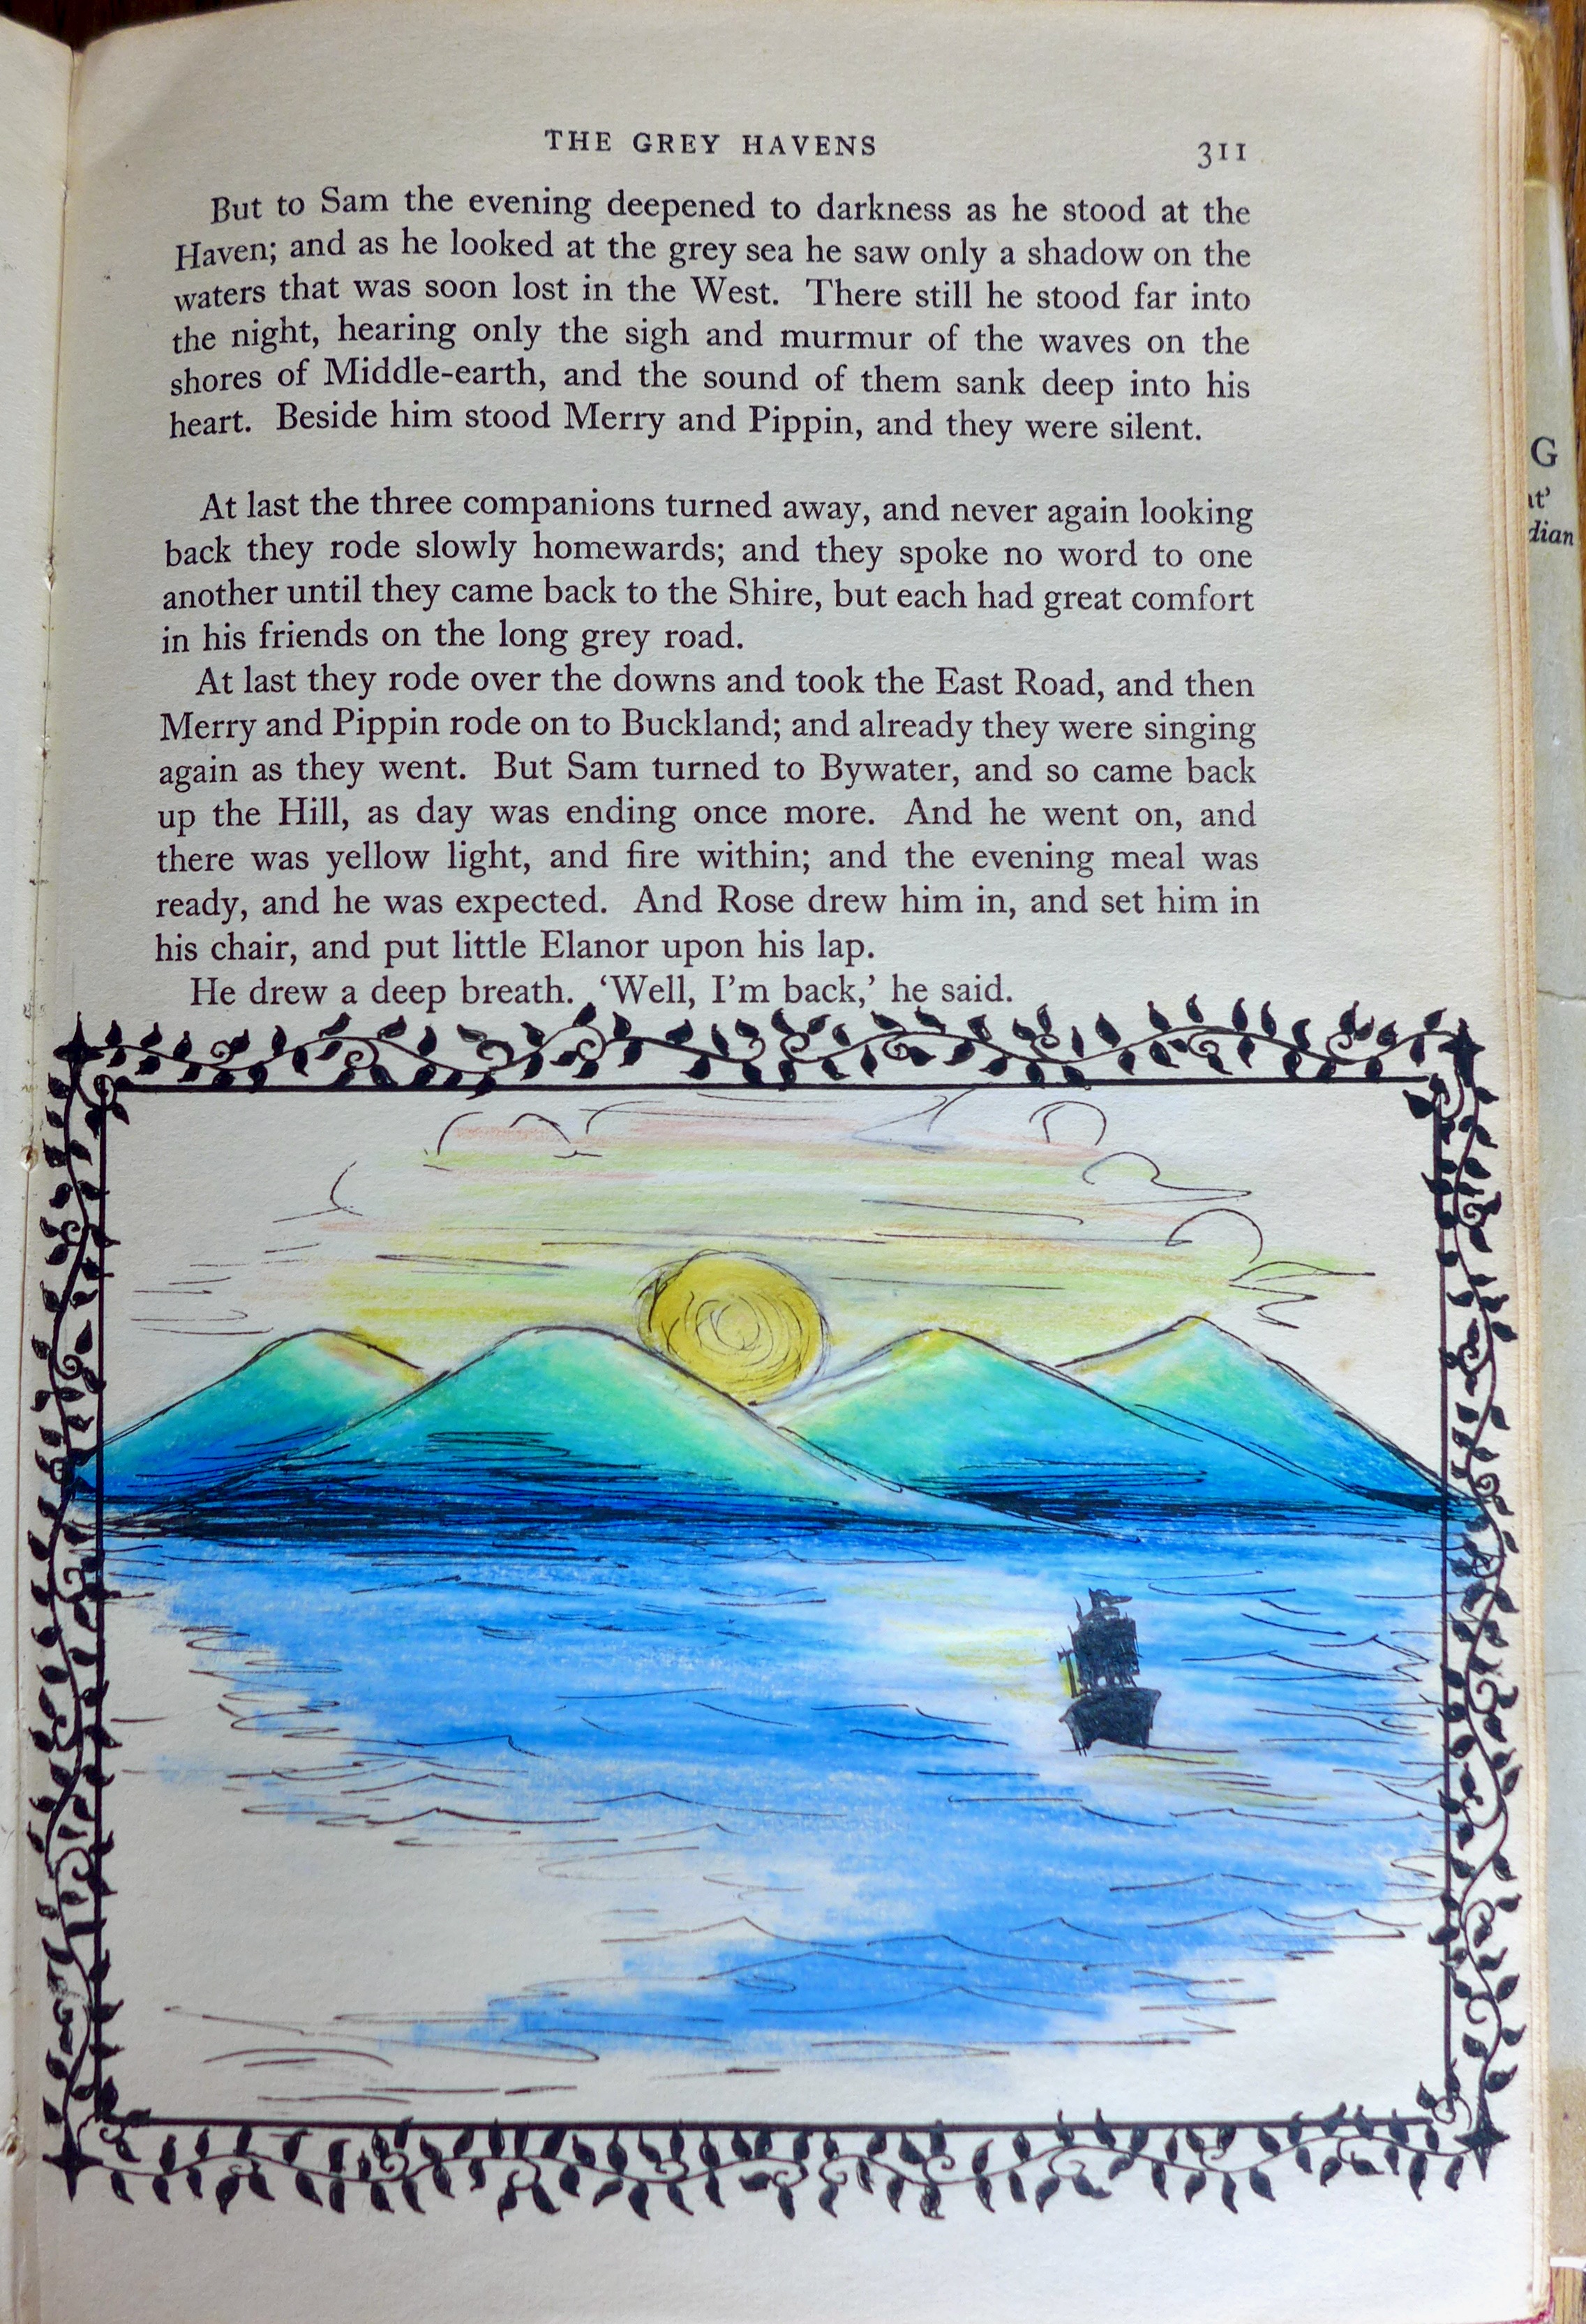 THE GREY HAVENS 311
But to Sam the evening deepened to darkness as he stood at the
Haven; and as he looked at the grey sea he saw only a shadow on the
waters that was soon lost in the West. There still he stood far into
the night, hearing only the sigh and murmur of the waves on the
shores of Middle-earth, and the sound of them sank deep into his
heart. Beside him stood Merry and Pippin, and they were silent.
At last the three companions turned away, and never again looking
back they rode slowly homewards; and they spoke no word to one
another until they came back to the Shire, but each had great comfort
in his friends on the long grey road.
At last they rode over the downs and took the East Road, and then
Merry and Pippin rode on to Buckland; and already they were singing
again as they went. But Sam turned to Bywater, and so came back
up the Hill, as day was ending once more. And he went on, and
there was yellow light, and fire within; and the evening meal was
ready, and he was expected. And Rose drew him in, and set him in
his chair, and put little Elanor upon his lap.
He drew a deep breath. ‘Well, I’m back,’ he said.
G
dian